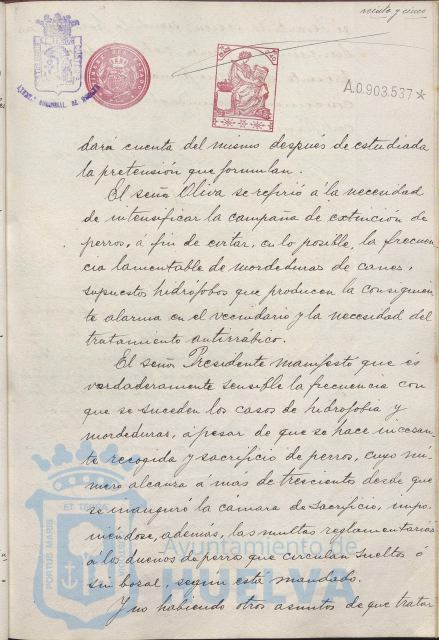 veinte y cinco
A.0.903.537*
dará cuenta del mismo después de estudiada
la pretensión que formulan.
El señor Oliva se refirió á la necesidad
de intensificar la campaña de extinción de
perros, á fin de cortar, en lo posible, la frecuen
cia lamentable de mordeduras de canes,
supuestos hidrófobos que producen la consiguien
te alarma en el vecindario y la necesidad del
tratamiento antirrábico.
El señor Presidente manifestó que es
verdaderamente sensible la frecuencia con
que se suceden los casos de hidrofobia y
mordeduras, á pesar de que se hace incesan
te recogida y sacrificio de perros, cuyo nú-
mero alcanza a mas de trescientos desde que
se inauguró la cámara de sacrificio, impo
niéndose, además, las multas reglamentarias
á los dueños de perros que circulan sueltos ó
sin bozal, según está mandado.
Y no habiendo otros asuntos de que tratar
Ayuntamiento de
HUELVA
PORTUS MARIS
ET TERRAE